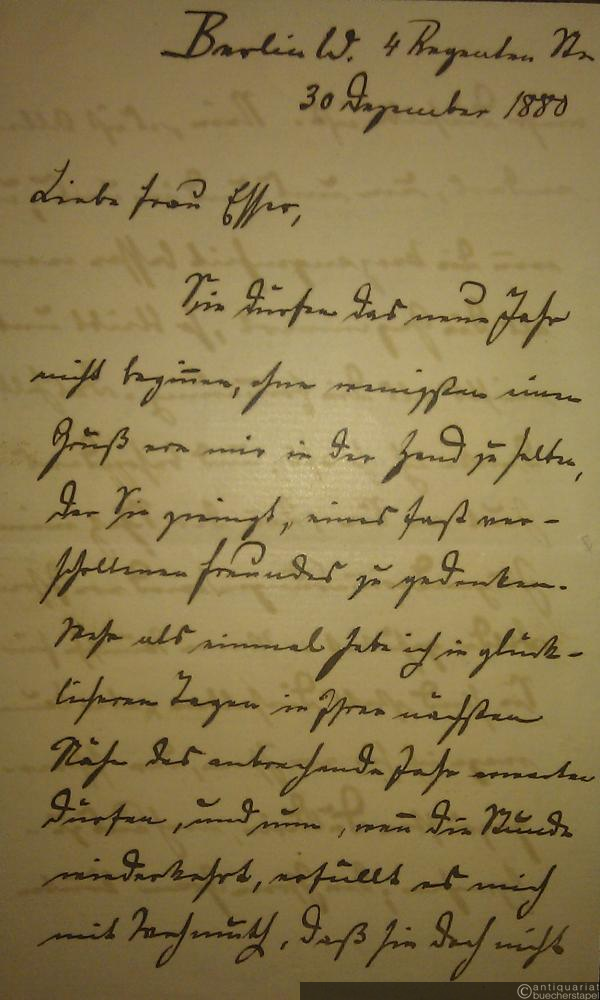 Berlin W. 4 Regenten Str
30 Dezember 1880
Liebe Frau Esser,
Sie dürfen das neue Jahr
nicht begin̄en, ohne wenigsten einen
Gruß von mir in der Hand zu halten,
der Sie zwingt, eines fast ver-
schollenen Freundes zu gedenken.
Mehr als einmal habe ich in glück-
licheren Tagen in Ihrer nächsten
Nähe das anbrechende Jahr erwarten
dürfen, und nun, wen̄ die Stunde
wiederkehrt, erfüllt es mich
mit Wehmuth, daß sie doch nicht
antiquariat
buecherstapel